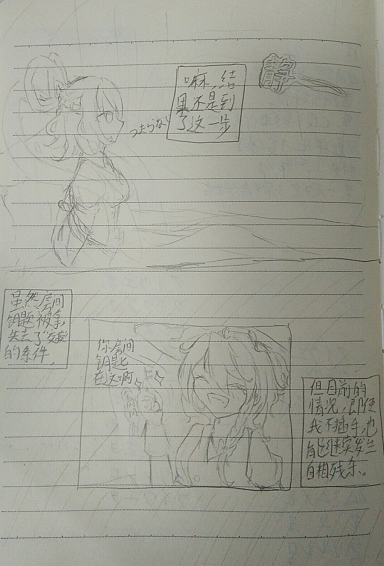 嘛,结
果不是到
了这一步
静
つまらない
虽然房间
钥匙被拿,
失去了交换
的条件,
你房间
钥匙
在这啊
但目前的
情况,即使
我不插手,也
能继续发生
自相残杀.